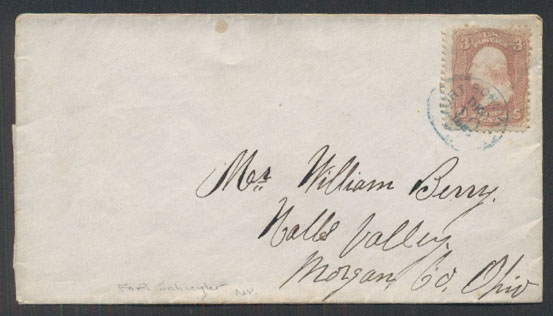 3 3
Mr. William Berry.
Halls Valley,
Morgan, Co, Ohio
Fort Schuyler NY